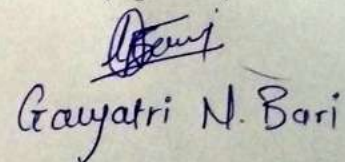 Gauyatri N. Bari